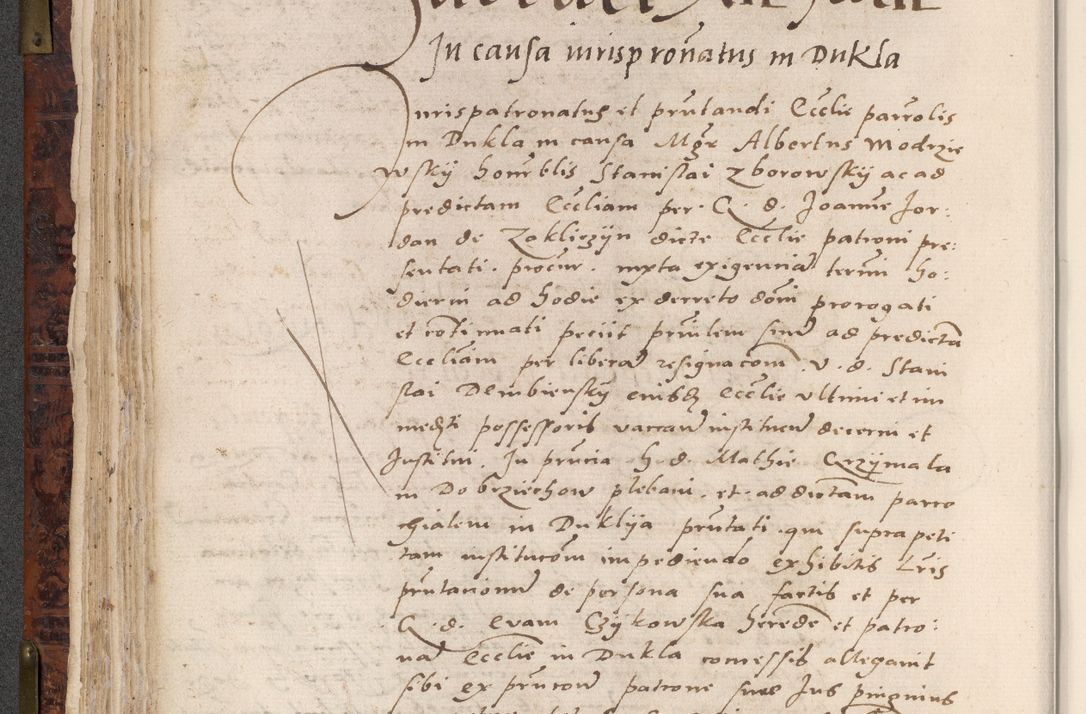 In causa iurispronatus in Dukla
Iurispatronatus et pruntandi Ecclie parrolis
in Dukla in causa Mgr Albertus Modrzie
wsky honrblis Stanislai Zborowsky ac ad
predictam Eccliam per G. d. Joanne Jor:
dan de Zakliczyn dicte Ecclie patroni pre:
sentati. procur. iuxta exigentia termi ho:
dierni ad hodie ex decreto domi prorogati
et continuati peciit privilem sinu ad predicta
Eccliam per libera resignacom. v. d. Stani
slai Dembiensky eiusdem Ecclie vltimi et im
mediti possessoris vacan institucu decerni et
Institui. In pruncia h. d. Mathie Grzymala
in Dobrziechow plebani. et ad dictam parro
chialem in Duklya pruntati qui supra peti
tam institucom impediendo exhibitis Lris
pruntacionu de persona sua factis et per
G. d. Evam Czykowska herede et patro:
na Ecclie in Dukla concessis allegavit
sibi ex pruntcou patrone sue Ius pinguius